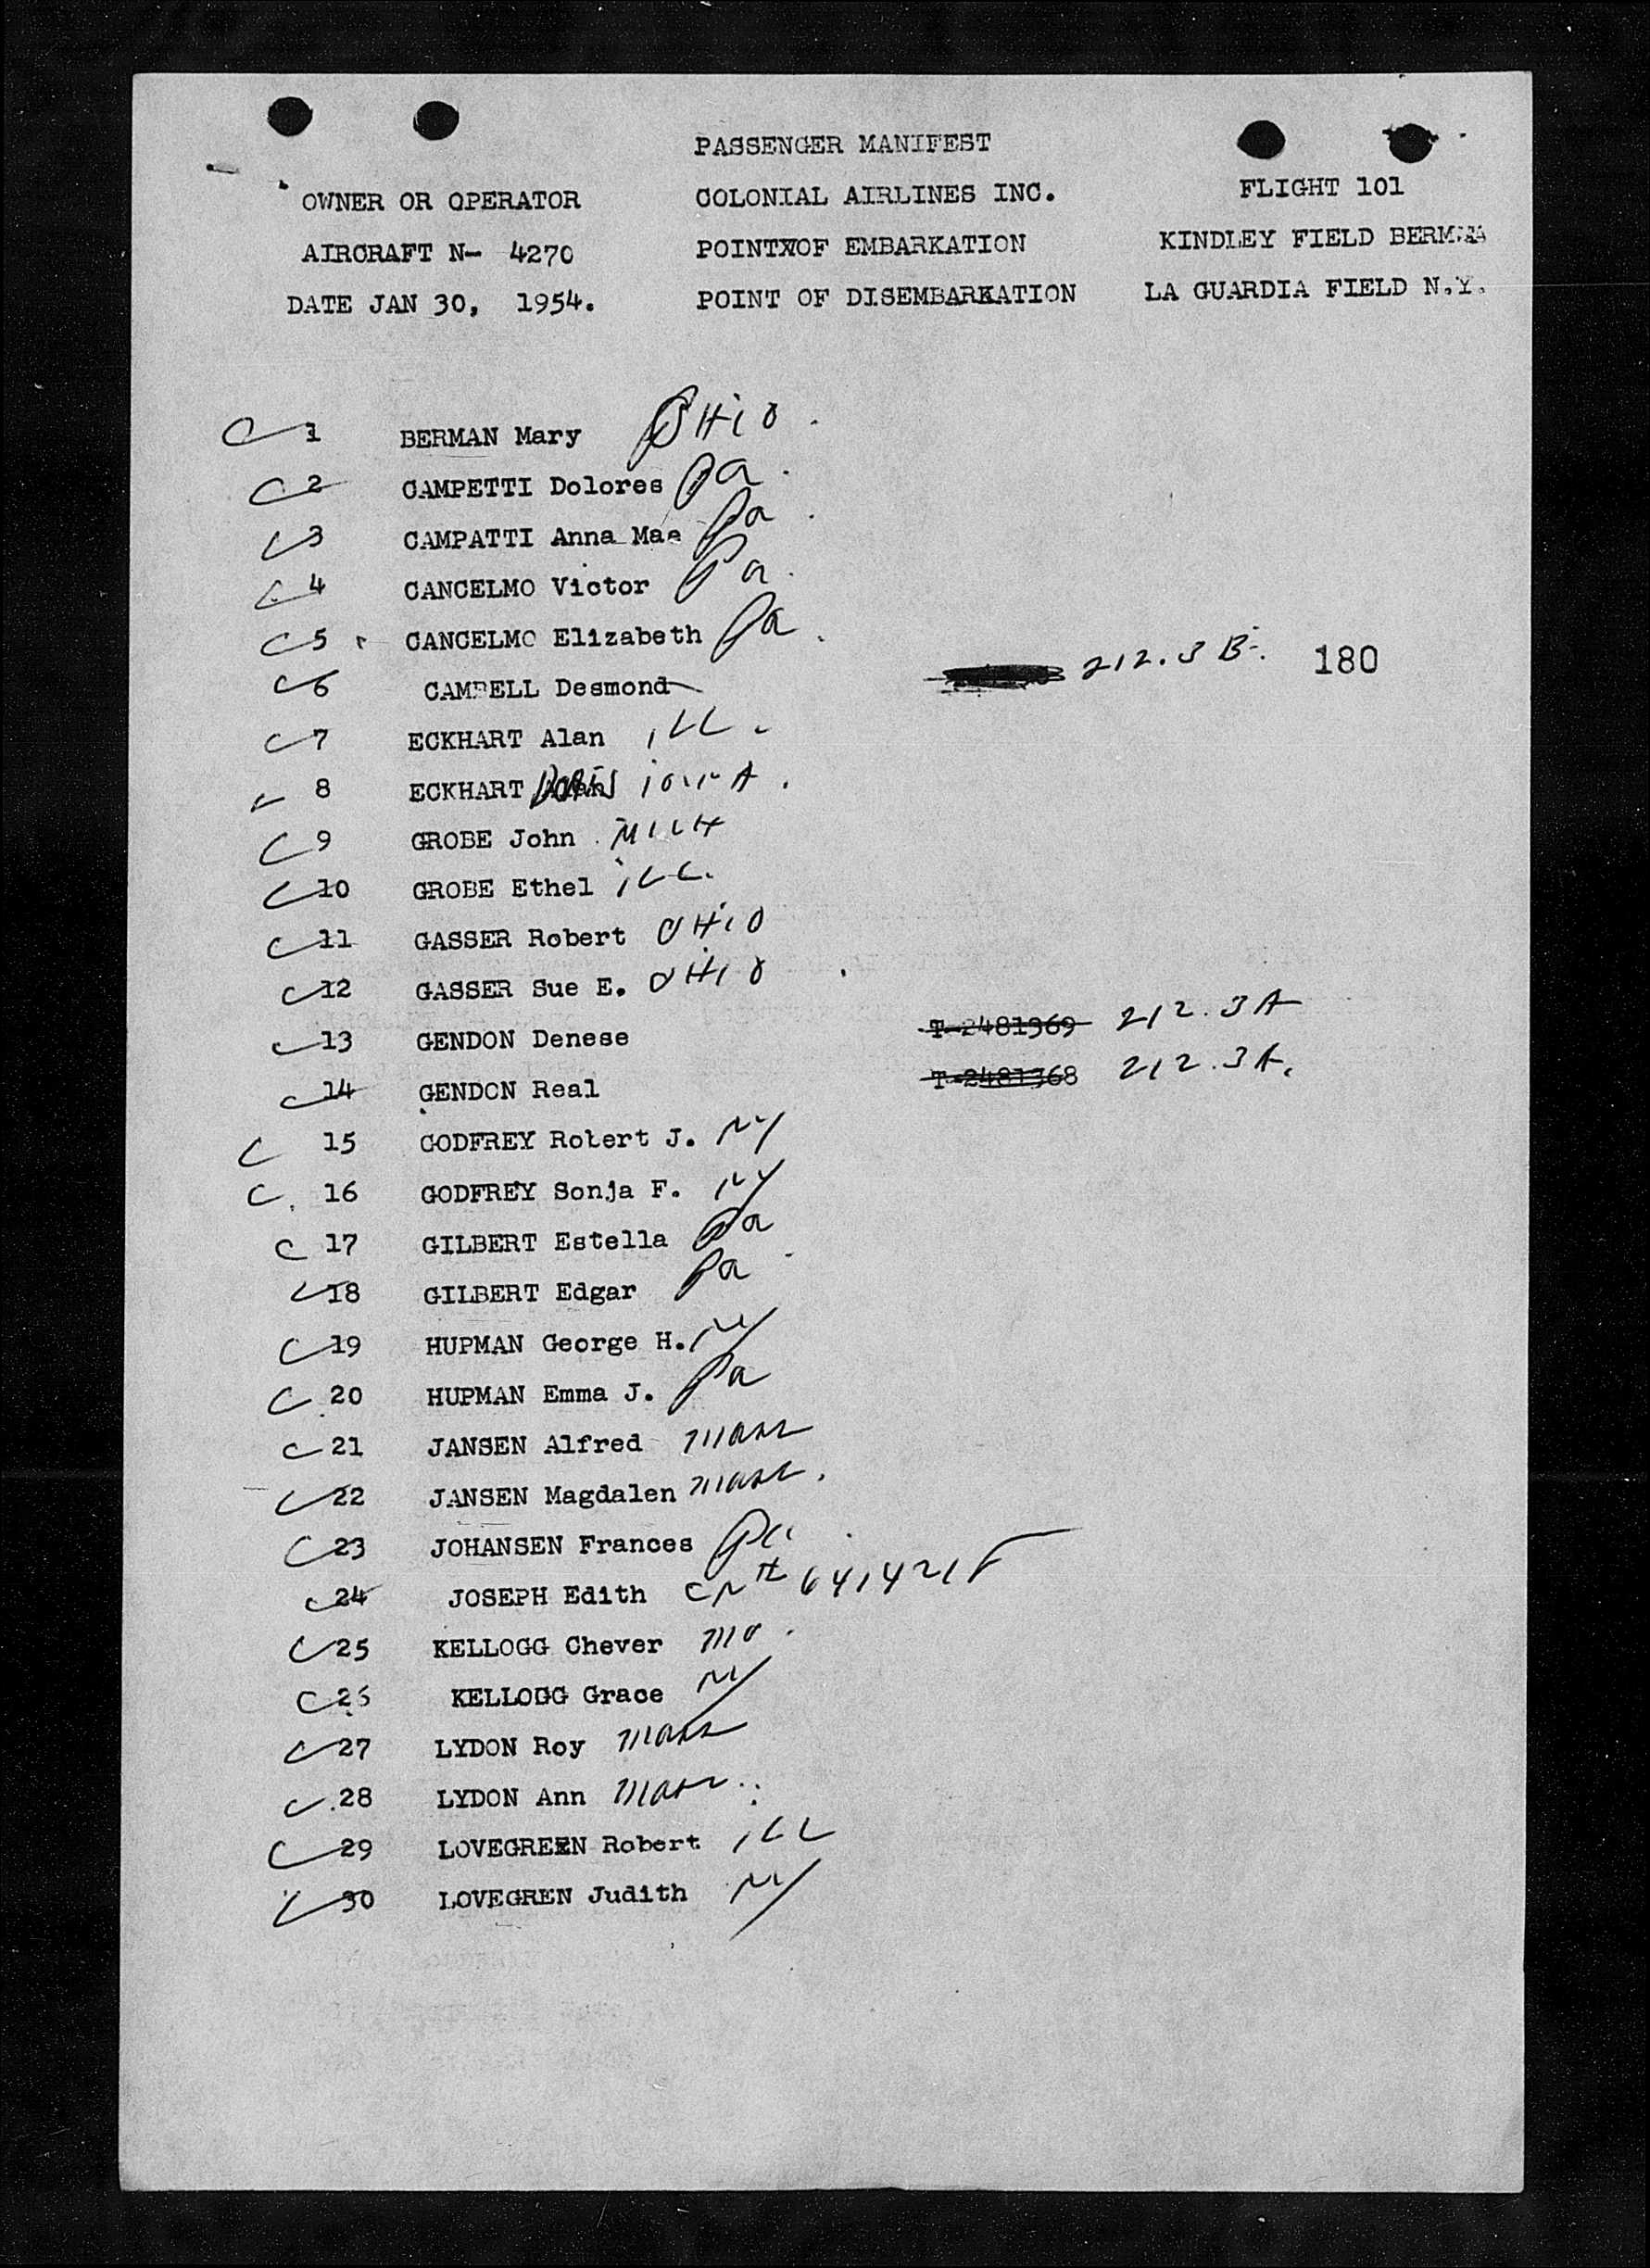 PASSENGER MANIFEST
OWNER OR OPERATOR COLONIAL AIRLINES INC. FLIGHT 101
AIRCRAFT N- 4270 POINTXOF EMBARKATION KINDLEY FIELD BERMUDA
DATE JAN 30, 1954. POINT OF DISEMBARKATION LA GUARDIA FIELD N.Y.
C 1 BERMAN Mary OHIO.
C 2 CAMPETTI Dolores Pa.
C 3 CAMPATTI Anna Mae Pa.
C 4 CANCELMO Victor Pa.
C 5 CANCELMO Elizabeth Pa.
C 6 CAMPELL Desmond 212.3 B. 180
C 7 ECKHART Alan ILL.
C 8 ECKHART DORIS IOWA.
C 9 GROBE John MICH
C 10 GROBE Ethel ILL.
C 11 GASSER Robert OHIO
C 12 GASSER Sue E. OHIO
C 13 GENDON Denese T-2481369 212.3A
C 14 GENDON Real T-2481368 212.3A.
C 15 GODFREY Robert J. NY
C 16 GODFREY Sonja F. NY
C 17 GILBERT Estella Pa
C 18 GILBERT Edgar Pa
C 19 HUPMAN George H. NY
C 20 HUPMAN Emma J. Pa
C 21 JANSEN Alfred Mass
C 22 JANSEN Magdalen Mass.
C 23 JOHANSEN Frances Pa.
C 24 JOSEPH Edith CN# 6414215
C 25 KELLOGG Chever Mo.
C 26 KELLOGG Grace NY
C 27 LYDON Roy Mass
C 28 LYDON Ann Mass.
C 29 LOVEGREEN Robert ILL
C 30 LOVEGREN Judith NY